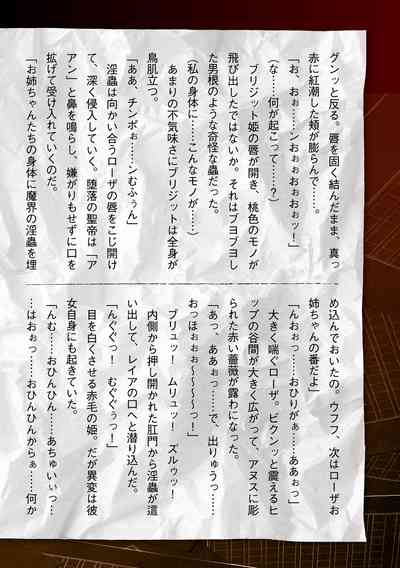 グンッと反る。唇を固く結んだまま、真っ
赤に紅潮した頬が膨らんで……。
「お、おぉ……ンおぉおぉおぉッ！」
（な……何が起こって……!?）
ブリジット姫の唇が開き、桃色のモノが
飛び出したではないか。それはブヨブヨし
た男根のような奇怪な蟲だった。
（私の身体に……こんなモノが……）
あまりの不気味さにブリジットは全身が
鳥肌立つ。
「ああ、チンポぉ……ンむふぅん」
淫蟲は向かい合うローザの唇をこじ開け
て、深く侵入していく。堕落の聖帝は「ア
アン」と鼻を鳴らし、嫌がりもせずに口を
拡げて受け入れていくのだ。
「お姉ちゃんたちの身体に魔界の淫蟲を埋
め込んでおいたの。ウフフ、次はローザお
姉ちゃんの番だよ」
「んおぉっ……おひりがぁ……ああぉっ」
大きく喘ぐローザ。ビクンッと震えるヒ
ップの谷間が大きく広がって、アヌスに彫
られた赤い薔薇が露わになった。
「あっ、ああぉっ……で、出りゅうっ……
おっほぉぉぉ〜〜〜〜っ！」
ブリュッ！ムリュッ！ズルゥッ！
内側から押し開かれた肛門から淫蟲が這
い出して、レイアの口へと潜り込んだ。
「んぐぐっ！むぐぐぅっ！」
目を白くさせる赤毛の姫。だが異変は彼
女自身にも起きていた。
「んむ……おひんひん……あちゅいぃっ…
…はおぉっ……おひんひんからぁ……何か